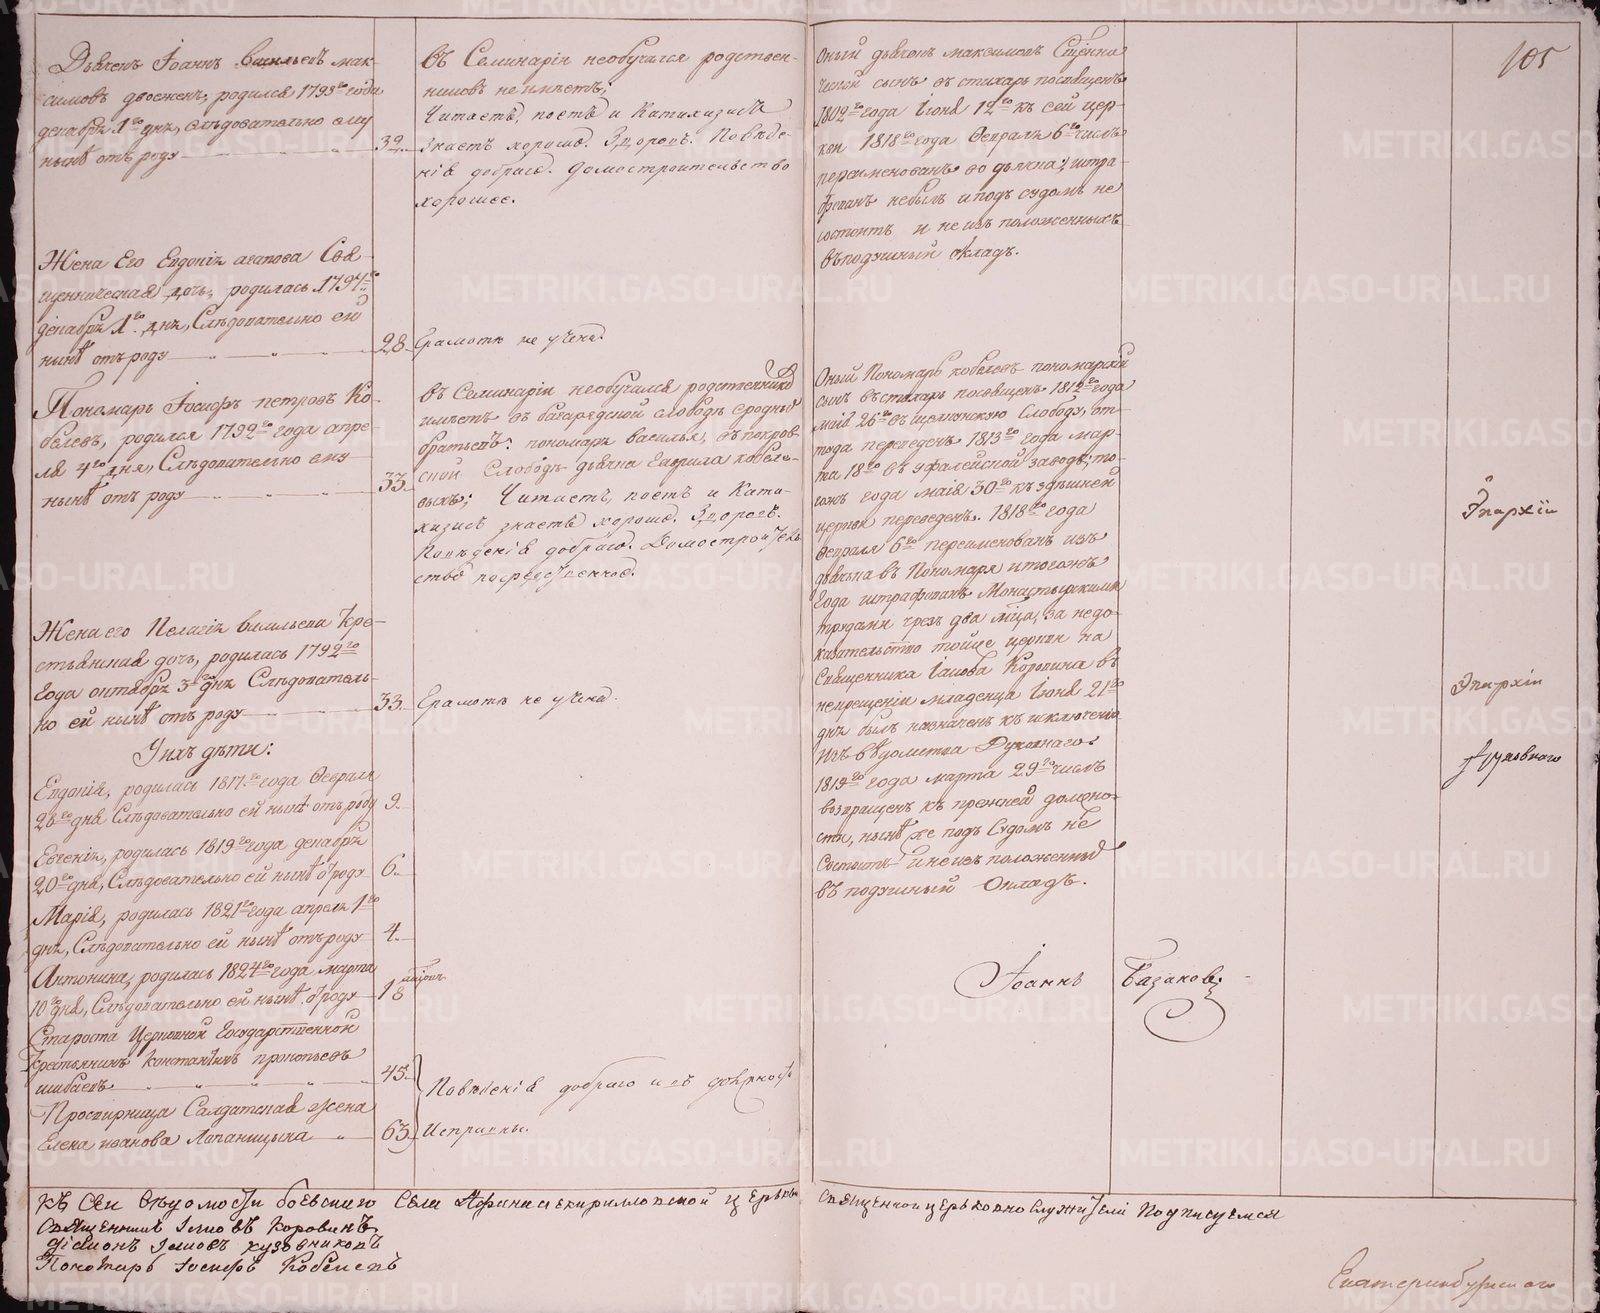 105
Дьячекъ Іоаннъ Васильевъ мак-
симовъ двоеженъ, родился 1793 го года
декабря 1 го дня, слѣдовательно ему
нынѣ отъ роду 32
Въ Семинаріи необучался родствен-
никовъ не имѣетъ;
Читаетъ, поетъ и Катихизисъ
знаетъ хорошо. Здоровъ. Поведе-
нія добраго. Домостроительство
хорошее.
Оный дьячекъ максимовъ Священни-
ческій сынъ въ стихарь посвященъ
1802 го года Іюня 12 го къ сей цер-
кви 1818 го года Февраля 6 го числа
переименованъ во дьячка; штра-
фованъ небылъ и подъ судомъ не
состоитъ и не изъ положенныхъ
въ подушный окладъ.
Жена Его Евдокія агапова Свя-
щенническая дочь, родилась 1797 го
декабря 1 го дня, Слѣдовательно ей
нынѣ отъ роду 28
Грамотѣ не учена.
Пономарь Іосифъ петровъ Ко-
белевъ, родился 1792 го года апре-
ля 4 го дня, Слѣдовательно ему
нынѣ отъ роду 33
Въ Семинаріи необучался родственниковъ
имѣетъ въ багарядской слободѣ сродныхъ
братьевъ: пономаря василья, въ покров-
ской Слободѣ дьячка гаврила кобеле-
выхъ; Читаетъ, поетъ и Кати-
хизисъ знаетъ хорошо. Здоровъ.
Поведенія добраго. Домостроитель-
ство посредственное.
Оный Пономарь кобелевъ пономарскій
сынъ въ стихарь посвященъ 1812 го года
маія 26 го въ щелкунскую Слободу, от-
туда переведенъ 1813 го года мар-
та 18 го въ уфалейской заводъ; то-
гожъ года маія 30 го къ здѣшней
церкви переведенъ. 1818 го года
Февраля 6 го переименованъ изъ
дьячка въ Пономаря итогожъ
Года штрафованъ Монастырскими
трудами чрезъ два мца, за недо-
казательство тойже церкви на
Священника Іакова Коровина въ
некрещеніи младенца Іюня 21 го
дня былъ назначенъ къ исключенію
изъ вѣдомства Духовнаго.
1819 го года марта 29 го числа
возвращенъ къ прежней должно-
сти, нынѣ же подъ Судомъ не
Состоитъ и не изъ положенныхъ
въ подушный Окладъ.
Епархіи
Жена его Пелагія васильева Кре-
стьянская дочь, родилась 1792 го
Года октября 3 го дня Слѣдователь-
но ей нынѣ отъ роду 33
Грамотѣ не учена.
Епархіи
Ихъ дѣти:
Евдокія, родилась 1817 го года Февраля
26 го дня Слѣдовательно ей нынѣ отъ роду 9
Евгенія, родилась 1819 го года декабря
20 го дня, Слѣдовательно ей нынѣ отроду 6
Марія, родилась 1821 го года апреля 1 го
дня, Слѣдовательно ей нынѣ отъ роду 4
Антонина, родилась 1824 го года марта
10 го дня, Слѣдовательно ей нынѣ отроду 1 8
Староста Церковной Государственной
Крестьянинъ Константинъ прокопьевъ
шибаевъ 45
Просвирница Салдатская жена
Елена иванова Лапаницына 63
Поведенія добраго и въ должности
Исправны.
Іоаннъ Казаковъ
Къ Сей Вѣдомости боевскаго Села Афанасіекирилловской церьквы Священноицерьковнослужители Подписуемся
Священникъ Іаковъ Коровинъ
Діаконъ Іаковъ кузовниковъ
Пономарь Іосифъ Кобелевъ
Екатеринбургскаго
METRIKI.GASO-URAL.RU